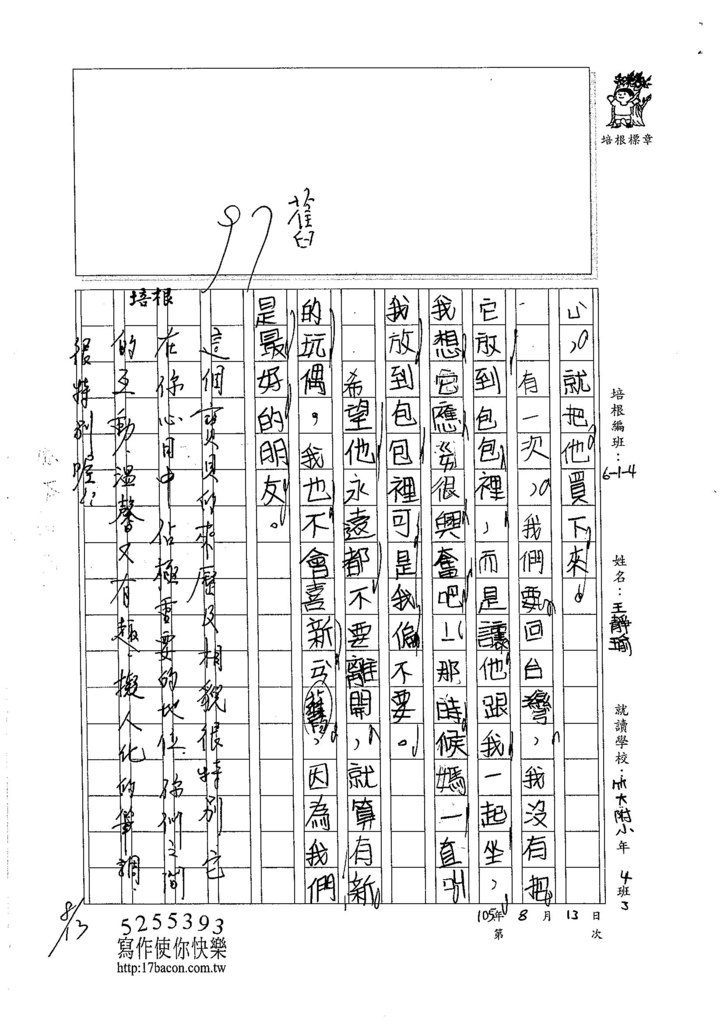 培根標章
97
培根編班：6-1-4
姓名：王靜瑜
就讀學校：竹大附小 年 4 班 3
105年 8 月 13 日
第 次
心，就把他買下來。
有一次，我們要回台灣，我沒有把
它放到包包裡，而是讓他跟我一起坐，
我想它應ㄍㄞ很興奮吧！那時候媽一直叫
我放到包包裡可是我偏不要。
希望他永遠都不要離開，就算有新
的玩偶，我也不會喜新ㄧㄢˋ舊，因為我們
是最好的朋友。
這個寶貝的來歷及相貌很特別，它
在你心目中佔極重要的地位，你們之間
的互動，溫馨又有趣，擬人化的筆調
很特別喔！
培根
8/13
5255393
寫作使你快樂
http:17bacon.com.tw